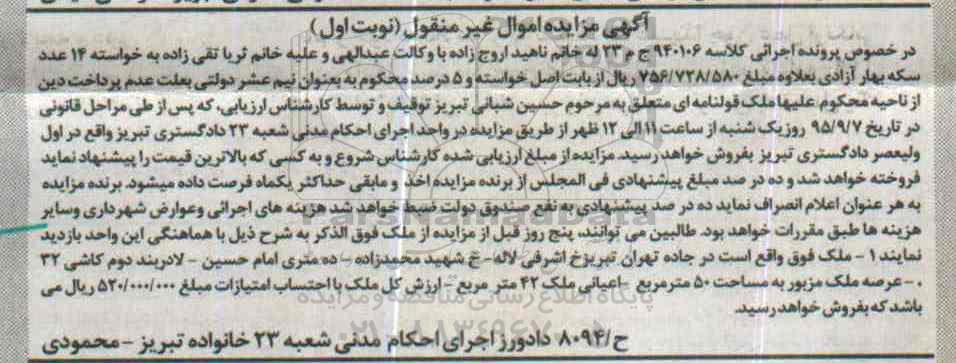 آگهی مزایده اموال غیر منقول (نوبت اول)
در خصوص پرونده اجرائی کلاسه ۹۴۰۱۰۶ ج م ۲۳ له خانم ناهید اروج زاده با وکالت عبدالهی و علیه خانم ثریا تقی زاده به خواسته ۱۴ عدد
سکه بهار آزادی بعلاوه مبلغ ۷۵۶/۷۲۸/۵۸۰ ریال از بابت اصل خواسته و ۵ درصد محکوم به بعنوان نیم عشر دولتی بعلت عدم پرداخت دین
از ناحیه محکوم علیها ملک قولنامه ای متعلق به مرحوم حسین شبانی تبریز توقیف و توسط کارشناس ارزیابی، که پس از طی مراحل قانونی
در تاریخ ۹۵/۹/۷ روز یک شنبه از ساعت ۱۱ الی ۱۲ ظهر از طریق مزایده در واحد اجرای احکام مدنی شعبه ۲۳ دادگستری تبریز واقع در اول
ولیعصر دادگستری تبریز بفروش خواهد رسید. مزایده از مبلغ ارزیابی شده کارشناس شروع و به کسی که بالاترین قیمت را پیشنهاد نماید
فروخته خواهد شد و ده در صد مبلغ پیشنهادی فی المجلس از برنده مزایده اخذ و مابقی حداکثر یکماه فرصت داده میشود. برنده مزایده
به هر عنوان اعلام انصراف نماید ده در صد پیشنهادی به نفع صندوق دولت ضبط خواهد شد هزینه های اجرائی وعوارض شهرداری وسایر
هزینه ها طبق مقررات خواهد بود. طالبین می توانند، پنج روز قبل از مزایده از ملک فوق الذکر به شرح ذیل با هماهنگی این واحد بازدید
نمایند ۱ - ملک فوق واقع است در جاده تهران تبریز خ اشرفی لاله- خ شهید محمدزاده - ده متری امام حسین - لادربند دوم کاشی ۳۲
۰ - عرصه ملک مزبور به مساحت ۵۰ مترمربع -اعیانی ملک ۴۲ متر مربع - ارزش کل ملک با احتساب امتیازات مبلغ ۵۲۰/۰۰۰/۰۰۰ ریال می
باشد که بفروش خواهد رسید.
پایگاه اطلاع رسانی مناقصه و مزایده
ح/۸۰۹۴ دادورز اجرای احکام مدنی شعبه ۲۳ خانواده تبریز - محمودی